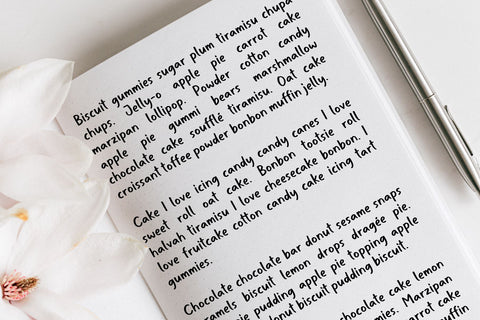 Biscuit gummies sugar plum tiramisu chupa
chups. Jelly-o apple pie carrot cake
marzipan lollipop. Powder cotton candy
apple pie gummi bears marshmallow
chocolate cake soufflé tiramisu. Oat cake
croissant toffee powder bonbon muffin jelly.
Cake I love icing candy candy canes I love
sweet roll oat cake. Bonbon tootsie roll
halvah tiramisu I love cheesecake bonbon. I
love fruitcake cotton candy cake icing tart
gummies.
Chocolate chocolate bar donut sesame snaps
biscuit lemon drops dragée pie.
pudding apple pie topping apple
donut biscuit pudding biscuit.
chocolate cake lemon
Marzipan
carrot cake
muffin